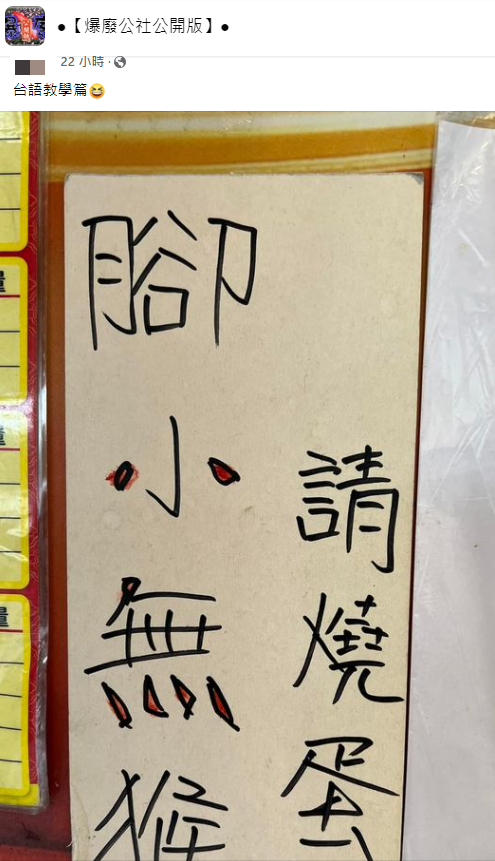 ●【爆廢公社公開版】●
22 小時 ·
台語教學篇😆
請燒蛋
腳小無猴
量
量
量